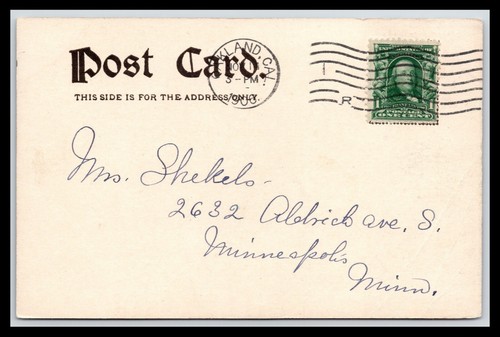 Post Card.
THIS SIDE IS FOR THE ADDRESS ONLY.
KLAND, CAL
3-PM
R
POSTAGE
ONE CENT
Mrs. Shekels-
2632 Aldrich ave. S.
Minneapolis
Minn.